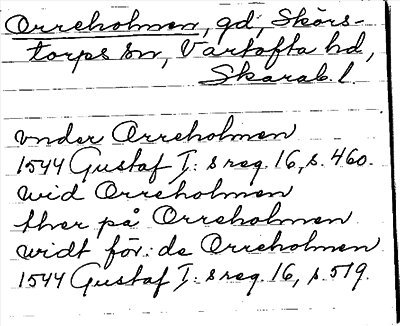 Orreholmen, gd, Skörs-
torps sn, Vartofta hd,
Skarab. l.
vnder Orreholmen
1544 Gustaf I: s reg. 16, s. 460.
wid Orreholmen
ther på Orreholmen
widt för: de Orreholmen
1544 Gustaf I: s reg. 16, s. 519.